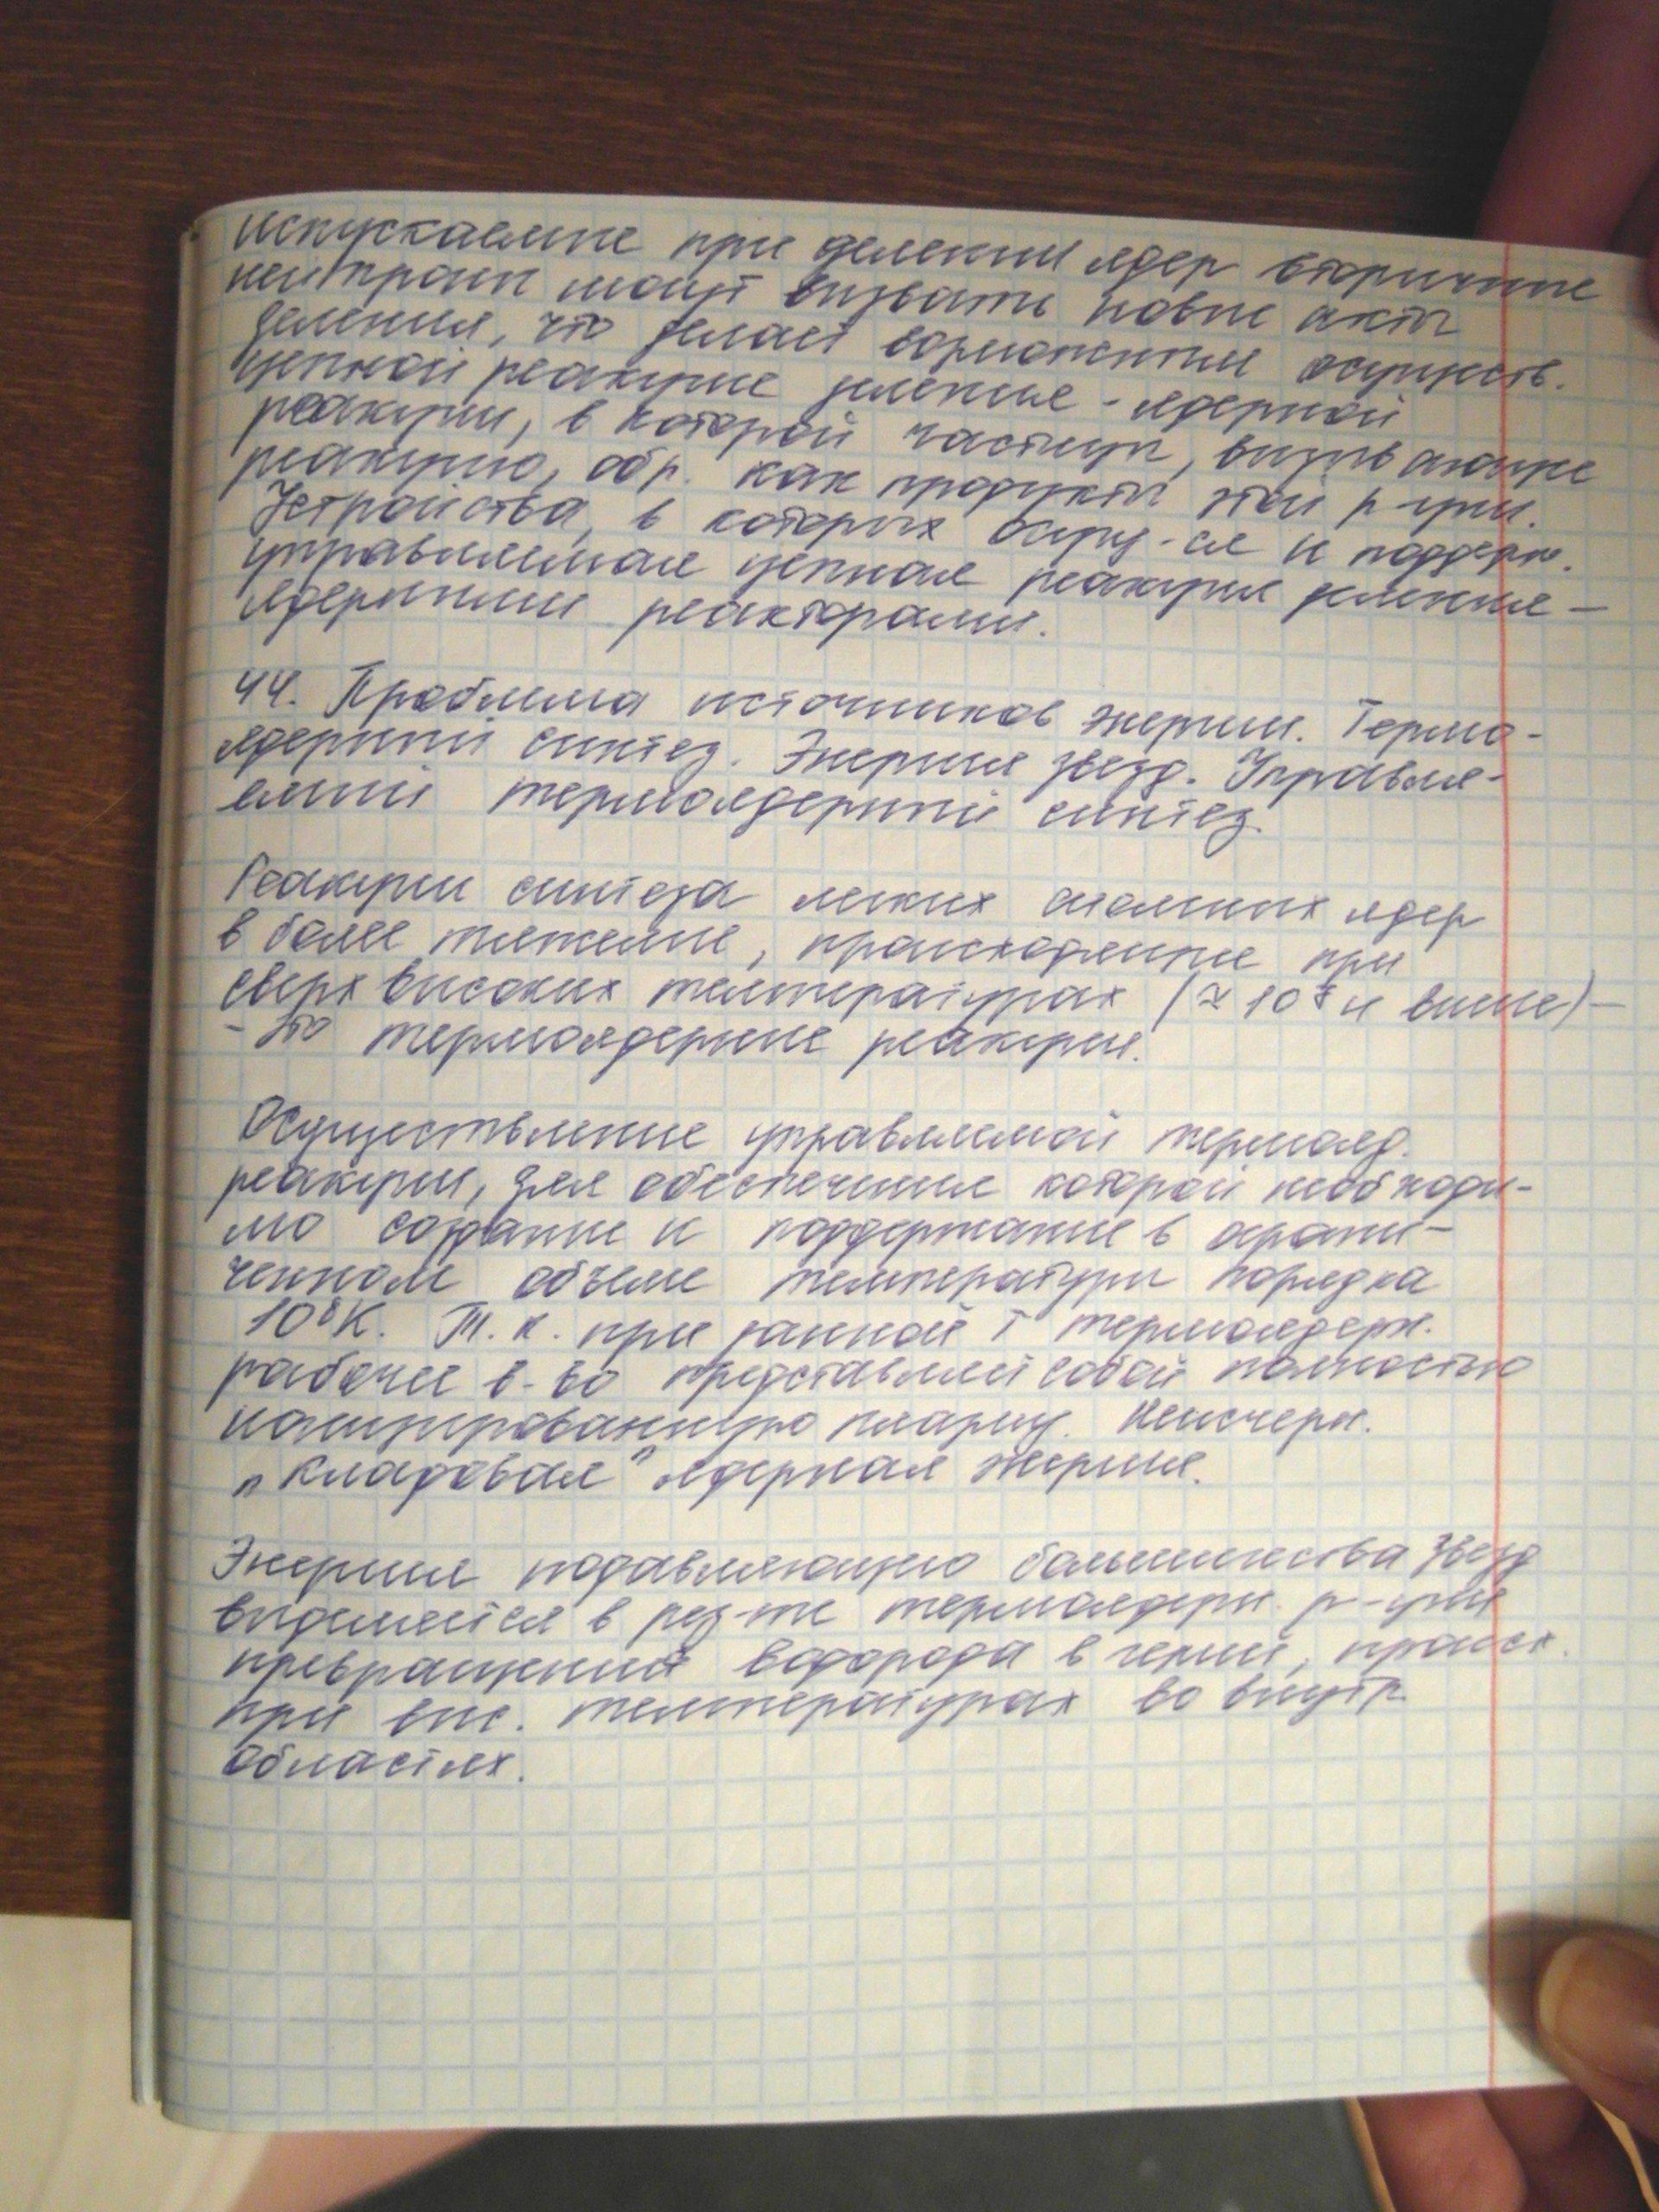 испускаемые при делении ядер вторичные
нейтроны могут вызвать новые акты
деления, что делает возможным осуществ.
цепной реакции деления - ядерной
реакции, в которой частицы, вызывающие
реакцию, обр. как продукты этой р-ции.
Устройства, в которых осущ-ся и поддерж.
управляемая цепная реакция деления –
ядерными реакторами.
44. Проблема источников энергии. Термо-
ядерный синтез. Энергия звезд. Управля-
емый термоядерный синтез.
Реакции синтеза легких атомных ядер
в более тяжелые, происходящие при
сверхвысоких температурах (≈ 10⁷ и выше) –
- это термоядерные реакции.
Осуществление управляемой термояд.
реакции, для обеспечения которой необходи-
мо создание и поддержание в ограни-
ченном объеме температуры порядка
10⁸К. Т.к. при данной Т термоядерн.
рабочее в-во представляет собой полностью
ионизированную плазму. Неисчерп.
„кладовая" ядерная энергия.
Энергия подавляющего большинства звезд
выделяется в рез-те термоядерн. р-ции
превращения водорода в гелий, происх.
при выс. температурах во внутр.
областях.